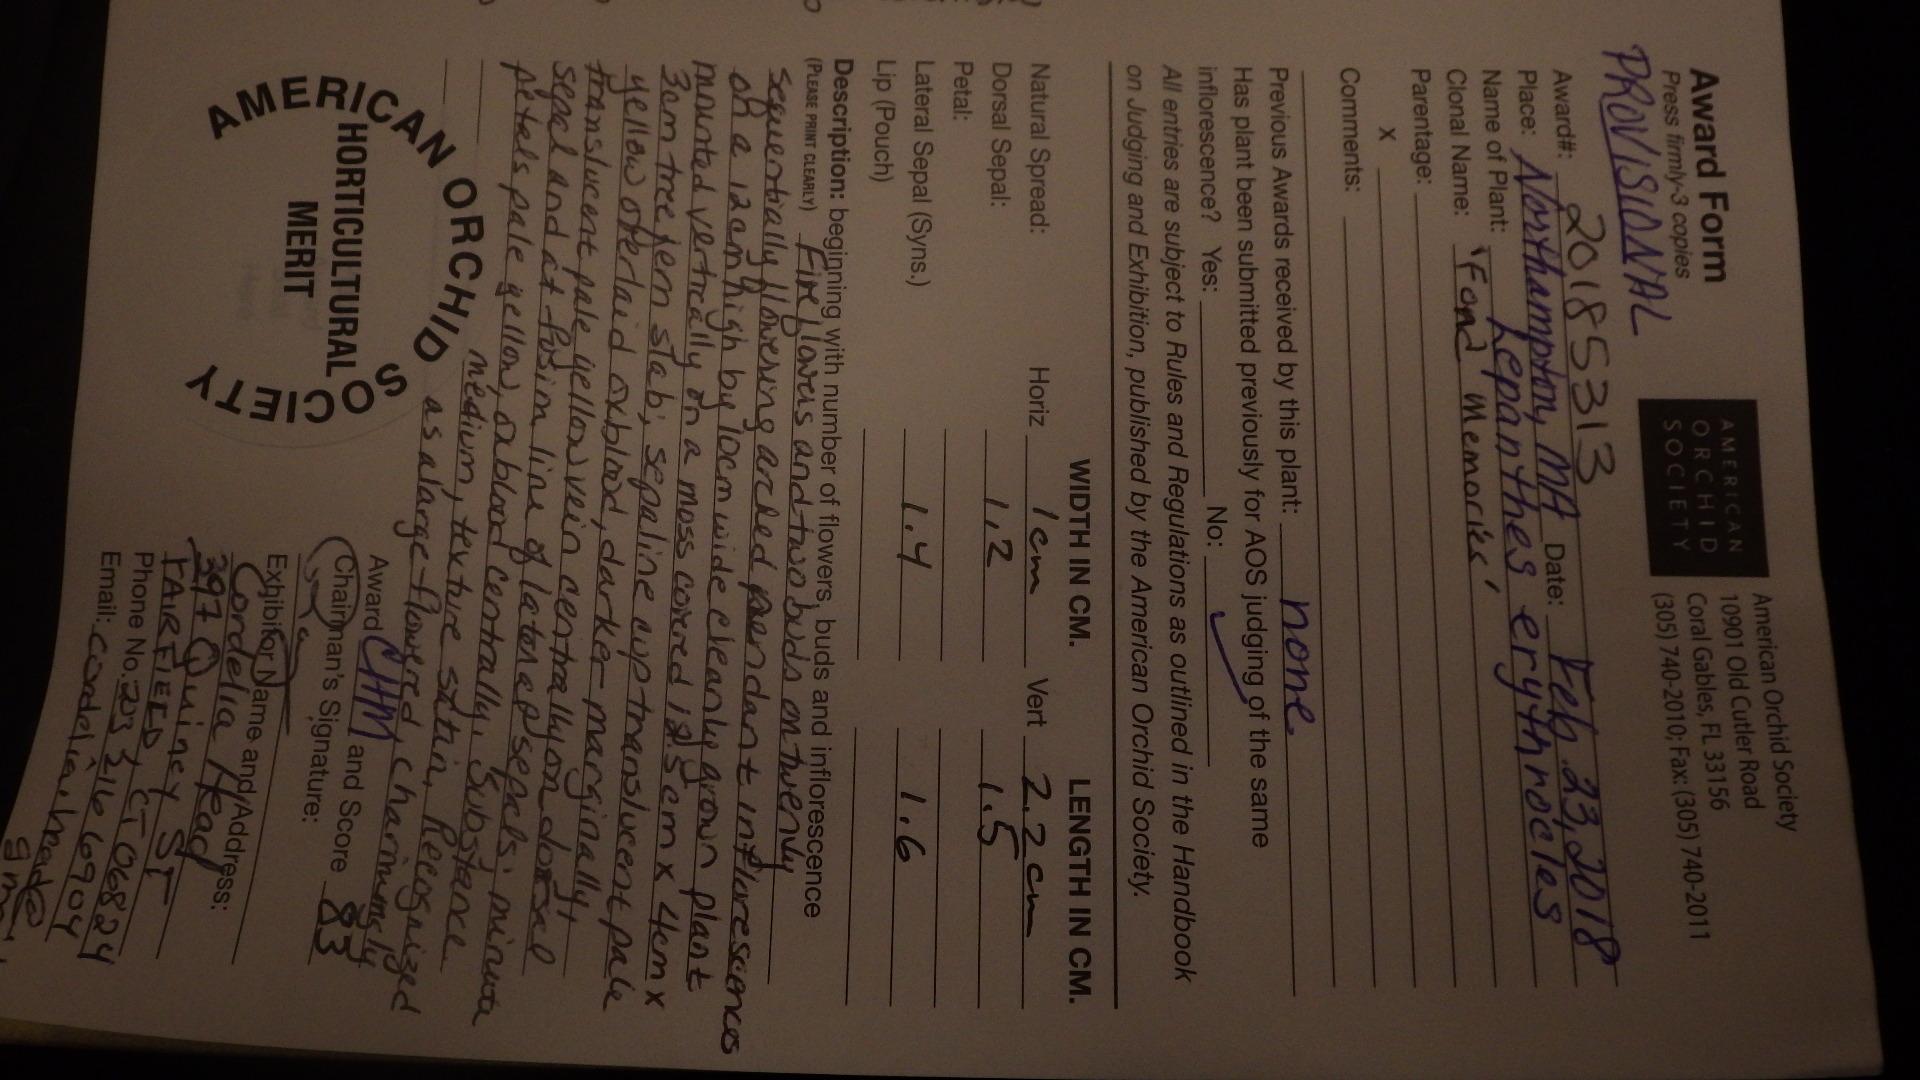 Award Form
Press firmly-3 copies
PROVISIONAL
AMERICAN
ORCHID
SOCIETY
American Orchid Society
10901 Old Cutler Road
Coral Gables, FL 33156
(305) 740-2010; Fax: (305) 740-2011
Award#: 20185313
Place: Northampton, MA Date: Feb 23, 2018
Name of Plant: Lepanthes erythrocles
Clonal Name: 'Fond Memories'
Parentage:
x
Comments:
Previous Awards received by this plant: none
Has plant been submitted previously for AOS judging of the same
inflorescence? Yes: No: ✓
All entries are subject to Rules and Regulations as outlined in the Handbook
on Judging and Exhibition, published by the American Orchid Society.
WIDTH IN CM. LENGTH IN CM.
Natural Spread: Horiz 1cm Vert 2.2cm
Dorsal Sepal: 1.2 1.5
Petal:
Lateral Sepal (Syns.) 1.4 1.6
Lip (Pouch)
Description: beginning with number of flowers, buds and inflorescence
(PLEASE PRINT CLEARLY) Five flowers and two buds on twenty
sequentially flowering arched pendant inflorescences
on a 12cm high by 10cm wide cleanly grown plant
mounted vertically on a moss covered cm x 4cm x
3cm tree fern slab; sepaline cup translucent pale
yellow overlaid oxblood, darker marginally,
translucent pale yellow vein centrally on dorsal
sepal and at fusion line of lateral sepals; minute
petals pale yellow, oxblood centrally; substance
medium, texture satin. Recognized
as a large-flowered, charmingly
AMERICAN ORCHID SOCIETY
HORTICULTURAL
MERIT
Award CHM and Score 83
Chairman's Signature:
Exhibitor Name and Address:
Cordelia Head
397 Quincy ST
FAIRFIELD, CT 06824
Phone No. 203 216 6904
Email: cordelia.head@